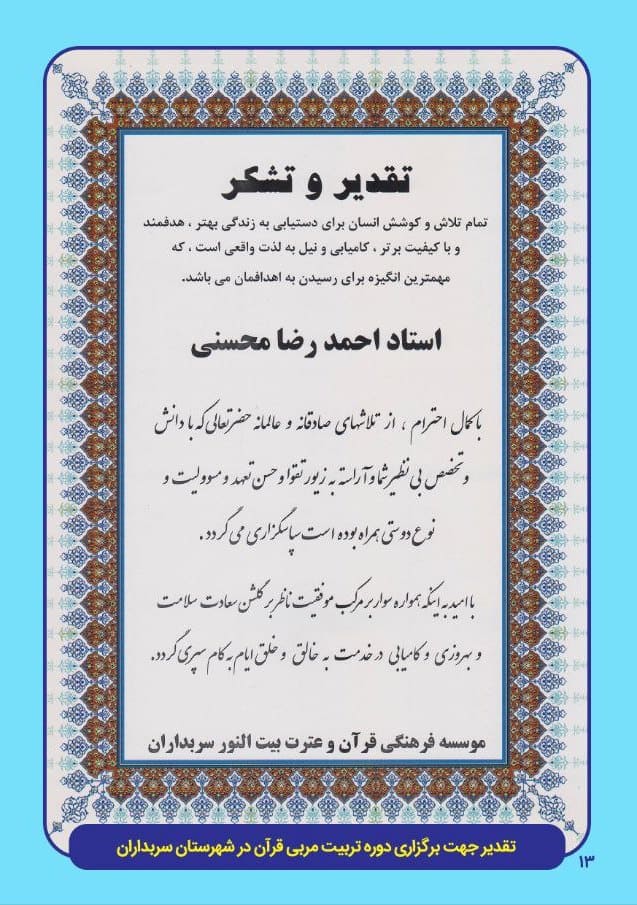 تقدیر و تشکر
تمام تلاش و کوشش انسان برای دستیابی به زندگی بهتر ، هدفمند
و با کیفیت برتر ، کامیابی و نیل به لذت واقعی است ، که
مهمترین انگیزه برای رسیدن به اهدافمان می باشد.
استاد احمد رضا محسنی
با کمال احترام ، از تلاشهای صادقانه و عالمانه حضرتعالی که با دانش
و تخصص بی نظیر شما و آراسته به زیور تقوا و حسن تعهد و مسوولیت و
نوع دوستی همراه بوده است سپاسگزاری می گردد.
با امید به اینکه همواره سوار بر مرکب موفقیت ناظر بر گلشن سعادت سلامت
و بهروزی و کامیابی در خدمت به خالق و خلق ایام به کام سپری گردد.
موسسه فرهنگی قرآن و عترت بیت النور سربداران
تقدیر جهت برگزاری دوره تربیت مربی قرآن در شهرستان سربداران
۱۳